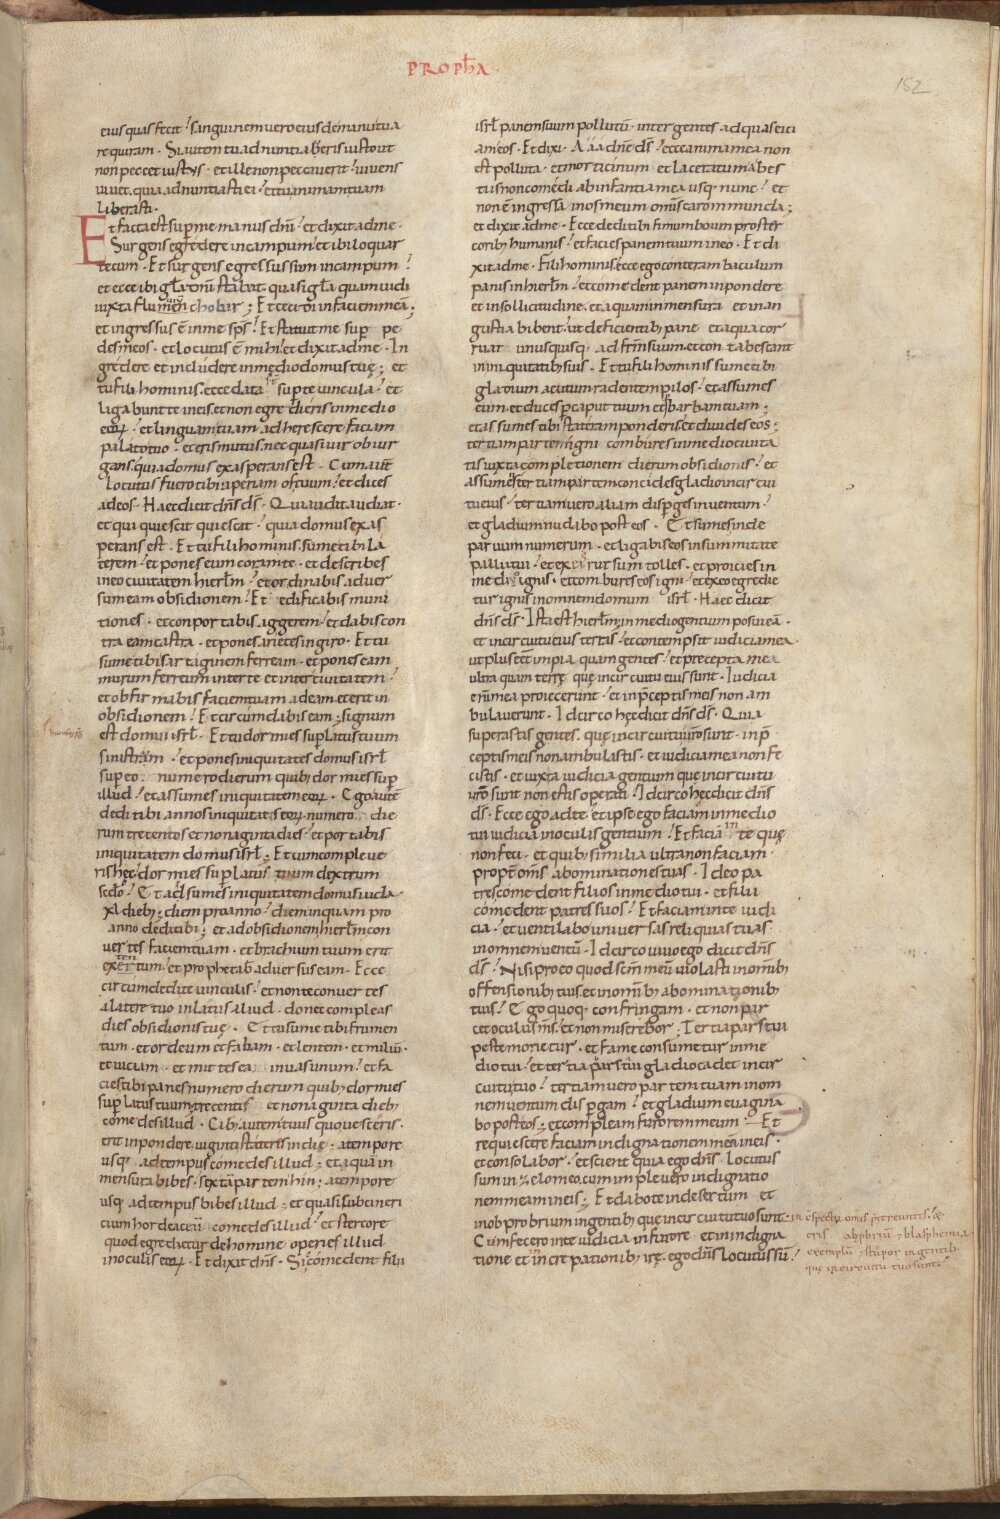 PROPHA
152
eius quas fecit; sanguinem vero eius de manu tua
requiram. Si autem tu adnuntiaveris iusto ut
non peccet iustus. et ille non peccaverit; vivens
vivet. quia adnuntiasti ei; et tu animam tuam
liberasti.
Et facta est sup me manus dni; et dixit ad me.
Surgens egredere in campum. et ibi loquar
tecum. Et surgens egressus sum in campum;
et ecce ibi gla dni stabat. quasi gla quam vidi
iuxta flumen chobar; Et cecidi in faciem meam;
et ingressus e in me sps; Et statuit me sup pe
des meos. et locutus e mihi et dixit ad me. In
gredere et includere in medio domus tuę; et
tu fili hominis. ecce data st sup te vincula; et
ligabunt te in eis. et non egredieris in medio
eor; et linguam tuam adherescere faciam
palato tuo. et eris mutus. nec quasi vir obiur
gans. quia domus exasperans est. Cum aut
locutus fuero tibi. aperiam os tuum; et dices
ad eos. Haec dicit dns ds. Qui audit audiat.
et qui quiescit quiescit; quia domus exas
perans est. Et tu fili hominis. sume tibi la
terem; et pones eum coram te. et describes
in eo civitatem hierlm; et ordinabis adver
sum eam obsidionem; Et edificabis muni
tiones. et conportabis aggerem; et dabis con
tra eam castra. et pones arietes in giro. Et tu
sume tibi sartaginem ferream. et pones eam
murum ferreum inter te et inter civitatem;
et obfirmabis faciem tuam ad eam et erit in
obsidionem; Et circumdabis eam; signum
est domui isrl. Et tu dormies sup latus tuum
sinistrum; et pones iniquitates domus isrl
sup eo. numero dierum quib; dormies sup
illud; et assumes iniquitatem eor. Ego aute
dedi tibi annos iniquitatis eor. numero die
rum trecentos et nonaginta dies; et portabis
iniquitatem domus isrl; Et cum compleve
ris hęc; dormies sup latus tuum dextrum
sedo; Et adsumes iniquitatem domus iuda
xl dieb; diem pro anno; diem inquam pro
anno dedi tibi; et ad obsidionem hierlm con
vertes faciem tuam. et brachium tuum erit
extentum; et prophetab adversus eam. Ecce
circumdedi te vinculis; et non te convertes
a latere tuo in latus aliud. donec compleas
dies obsidionis tuę. Et tu sume tibi frumen
tum. et ordeum et fabam. et lentem. et miliu.
et viciam. et mittes ea in vas unum; et fa
cies tibi panes numero dierum quib; dormies
sup latus tuum; trecentis et nonaginta dieb;
comedes illud. Cib; autem tuus quo vesceris.
erit in pondere. viginti stateres in die. a tempore
usq; ad tempus comedes illud; et aquam in
mensura bibes. sextam partem hin; a tempore
usq; ad tempus bibes illud; et quasi subcineri
cium hordeaceu comedes illud; et stercore
quod egreditur de homine operies illud
in oculis eor. Et dixit dns. Sic comedent filii
isrl panem suum pollutu. inter gentes ad quas eici
am eos. Et dixi. A a a dne ds; ecce anima mea non
est polluta. et morticinum et laceratum a bes
tiis non comedi ab infantia mea usq; nunc; et
non e ingressa in os meum omis caro inmunda;
et dixit ad me. Ecce dedi tibi fimum boum p ster
corib; humanis; et facies panem tuum in eo. Et di
xit ad me. Fili hominis. ecce ego conteram baculum
panis in hierlm; et comedent panem in pondere
et in sollicitudine. et aquam in mensura et in an
gustia bibent; ut deficientib; pane et aqua cor
ruat unusquisq; ad frm suum. et contabescant
in iniquitatib; suis. Et tu fili hominis sume tibi
gladium acutum radentem pilos; et assumes
eum. et duces p caput tuum et p barbam tuam;
et assumes tibi stateram ponderis et divides eos;
tertiam partem igni combures in medio civita
tis iuxta completionem dierum obsidionis; et
assumens tertiam partem concides gladio in circui
tu eius; tertiam vero aliam disperges in ventum;
et gladium nudabo post eos. Et sumes inde
parvum numerum. et ligabis eos in summitate
pallii tui; et ex eis rursum tolles. et proicies in
medio ignis. et combures eos igni; et ex eo egredie
tur ignis in omnem domum isrl. Haec dicit
dns ds. Ista est hierlm. in medio gentium posui ea.
et in circuitu eius terras; et contempsit iudicia mea.
ut plus eet impia quam gentes; et precepta mea
ultra quam terrę quę in circuitu eius sunt. Iudicia
eni mea proiecerunt; et in pceptis meis non am
bulaverunt. Idcirco hęc dicit dns ds. Quia
superastis gentes. quę in circuitu vro sunt. in p
ceptis meis non ambulastis. et iudicia mea non fe
cistis. et iuxta iudicia gentium quę in circuitu
vro sunt non estis operati; Idcirco hęc dicit dns
ds. Ecce ego ad te. et ipse ego faciam in medio
tui iudicia in oculis gentium; Et faciam in te quę
non feci. et quib; similia ultra non faciam
propt oms abominationes tuas. Ideo pa
tres comedent filios in medio tui. et filii
comedent patres suos; Et faciam in te iudi
cia; et ventilabo universas reliquias tuas
in omnem ventu. Idcirco vivo ego dicit dns
ds; Nisi pro eo quod scm meu violasti in omib;
offensionib; tuis. et in omib; abominationib;
tuis; Ego quoq; confringam. et non par
cet oculus ms. et non miserebor. Tertia pars tui
peste morietur. et fame consumetur in me
dio tui; et tertia pars tui gladio cadet in cir
cuitu tuo; tertiam vero partem tuam in om
nem ventum dispgam; et gladium evagina
bo post eos; et compleam furorem meum. Et
requiescere faciam indignationem meam in eis.
et consolabor. et scient quia ego dns locutus
sum in zelo meo. cum implevero indignatio
nem meam in eis; Et dabo te in desertum et
in obprobrium in gentib; que in circuitu tuo sunt.
Cum fecero in te iudicia in furore et in indigna
tione et in increpationib; irę. ego dns locutus su;
in cspectu omis pretereuntis. &
eris obpbriu & blasphemia
exemplu & stupor in gentib;
quę in circuitu tuo sunt.